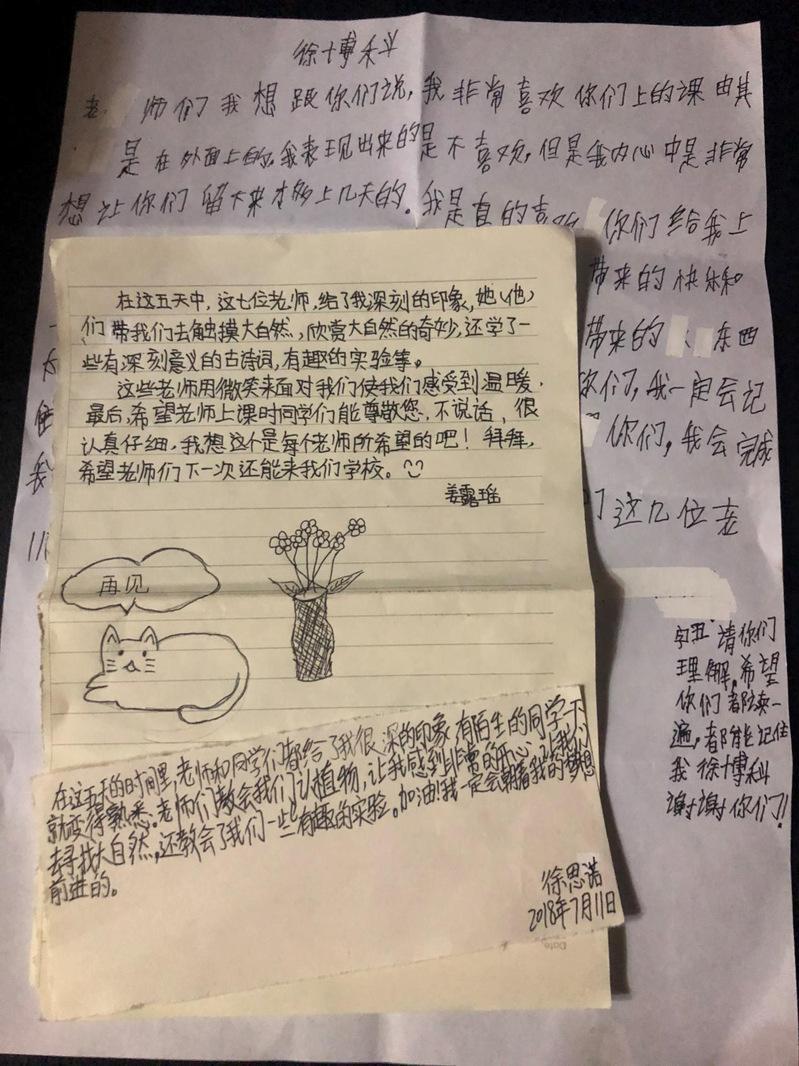 徐博科
老师们我想跟你们说,我非常喜欢你们上的课由其
是在外面上的,我表现出来的是不喜欢,但是我内心中是非常
想让你们留下来才多上几天的.我是真的喜欢你们给我上
带来的快乐和
带来的东西
你们,我一定会记
你们,我会完成
这几位老
字丑请你们
理解,希望
你们都读一
遍,都能记住
我徐博科
谢谢你们!
在这五天中,这七位老师,给了我深刻的印象,她(他)
们带我们去触摸大自然,欣赏大自然的奇妙,还学了一
些有深刻意义的古诗词,有趣的实验等。
这些老师用微笑来面对我们使我们感受到温暖,
最后,希望老师上课时同学们能尊敬您,不说话,很
认真仔细,我想这个是每个老师所希望的吧!拜拜,
希望老师们下一次还能来我们学校。
姜露瑶
再见
在这五天的时间里,老师和同学们都给了我很深的印象,有陌生的同学不
就变得熟悉.老师们教会我们认植物,让我感到非常的开心,让我们
去寻找大自然,还教会了我们一些有趣的实验。加油!我一定会朝着我的梦想
前进的。
徐思诺
2018年7月11日